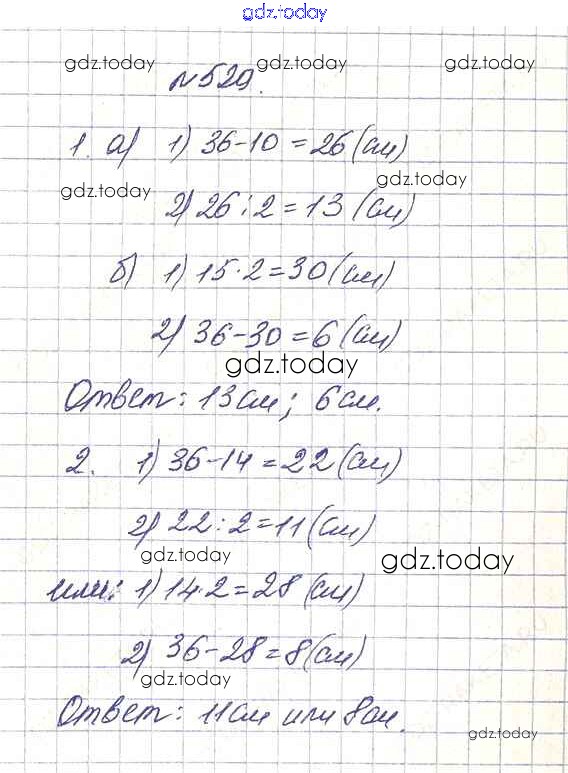 gdz.today
gdz.today gdz.today gdz.today
№529.
1. а) 1) 36-10=26(см)
gdz.today gdz.today
2) 26:2=13 (см)
б) 1) 15·2=30(см)
2) 36-30=6(см)
gdz.today
Ответ: 13см; 6см.
2. 1) 36-14=22(см)
2) 22:2=11(см)
gdz.today gdz.today
или: 1) 14·2=28 (см)
2) 36-28=8(см)
gdz.today
Ответ: 11см или 8см.
gdz.today